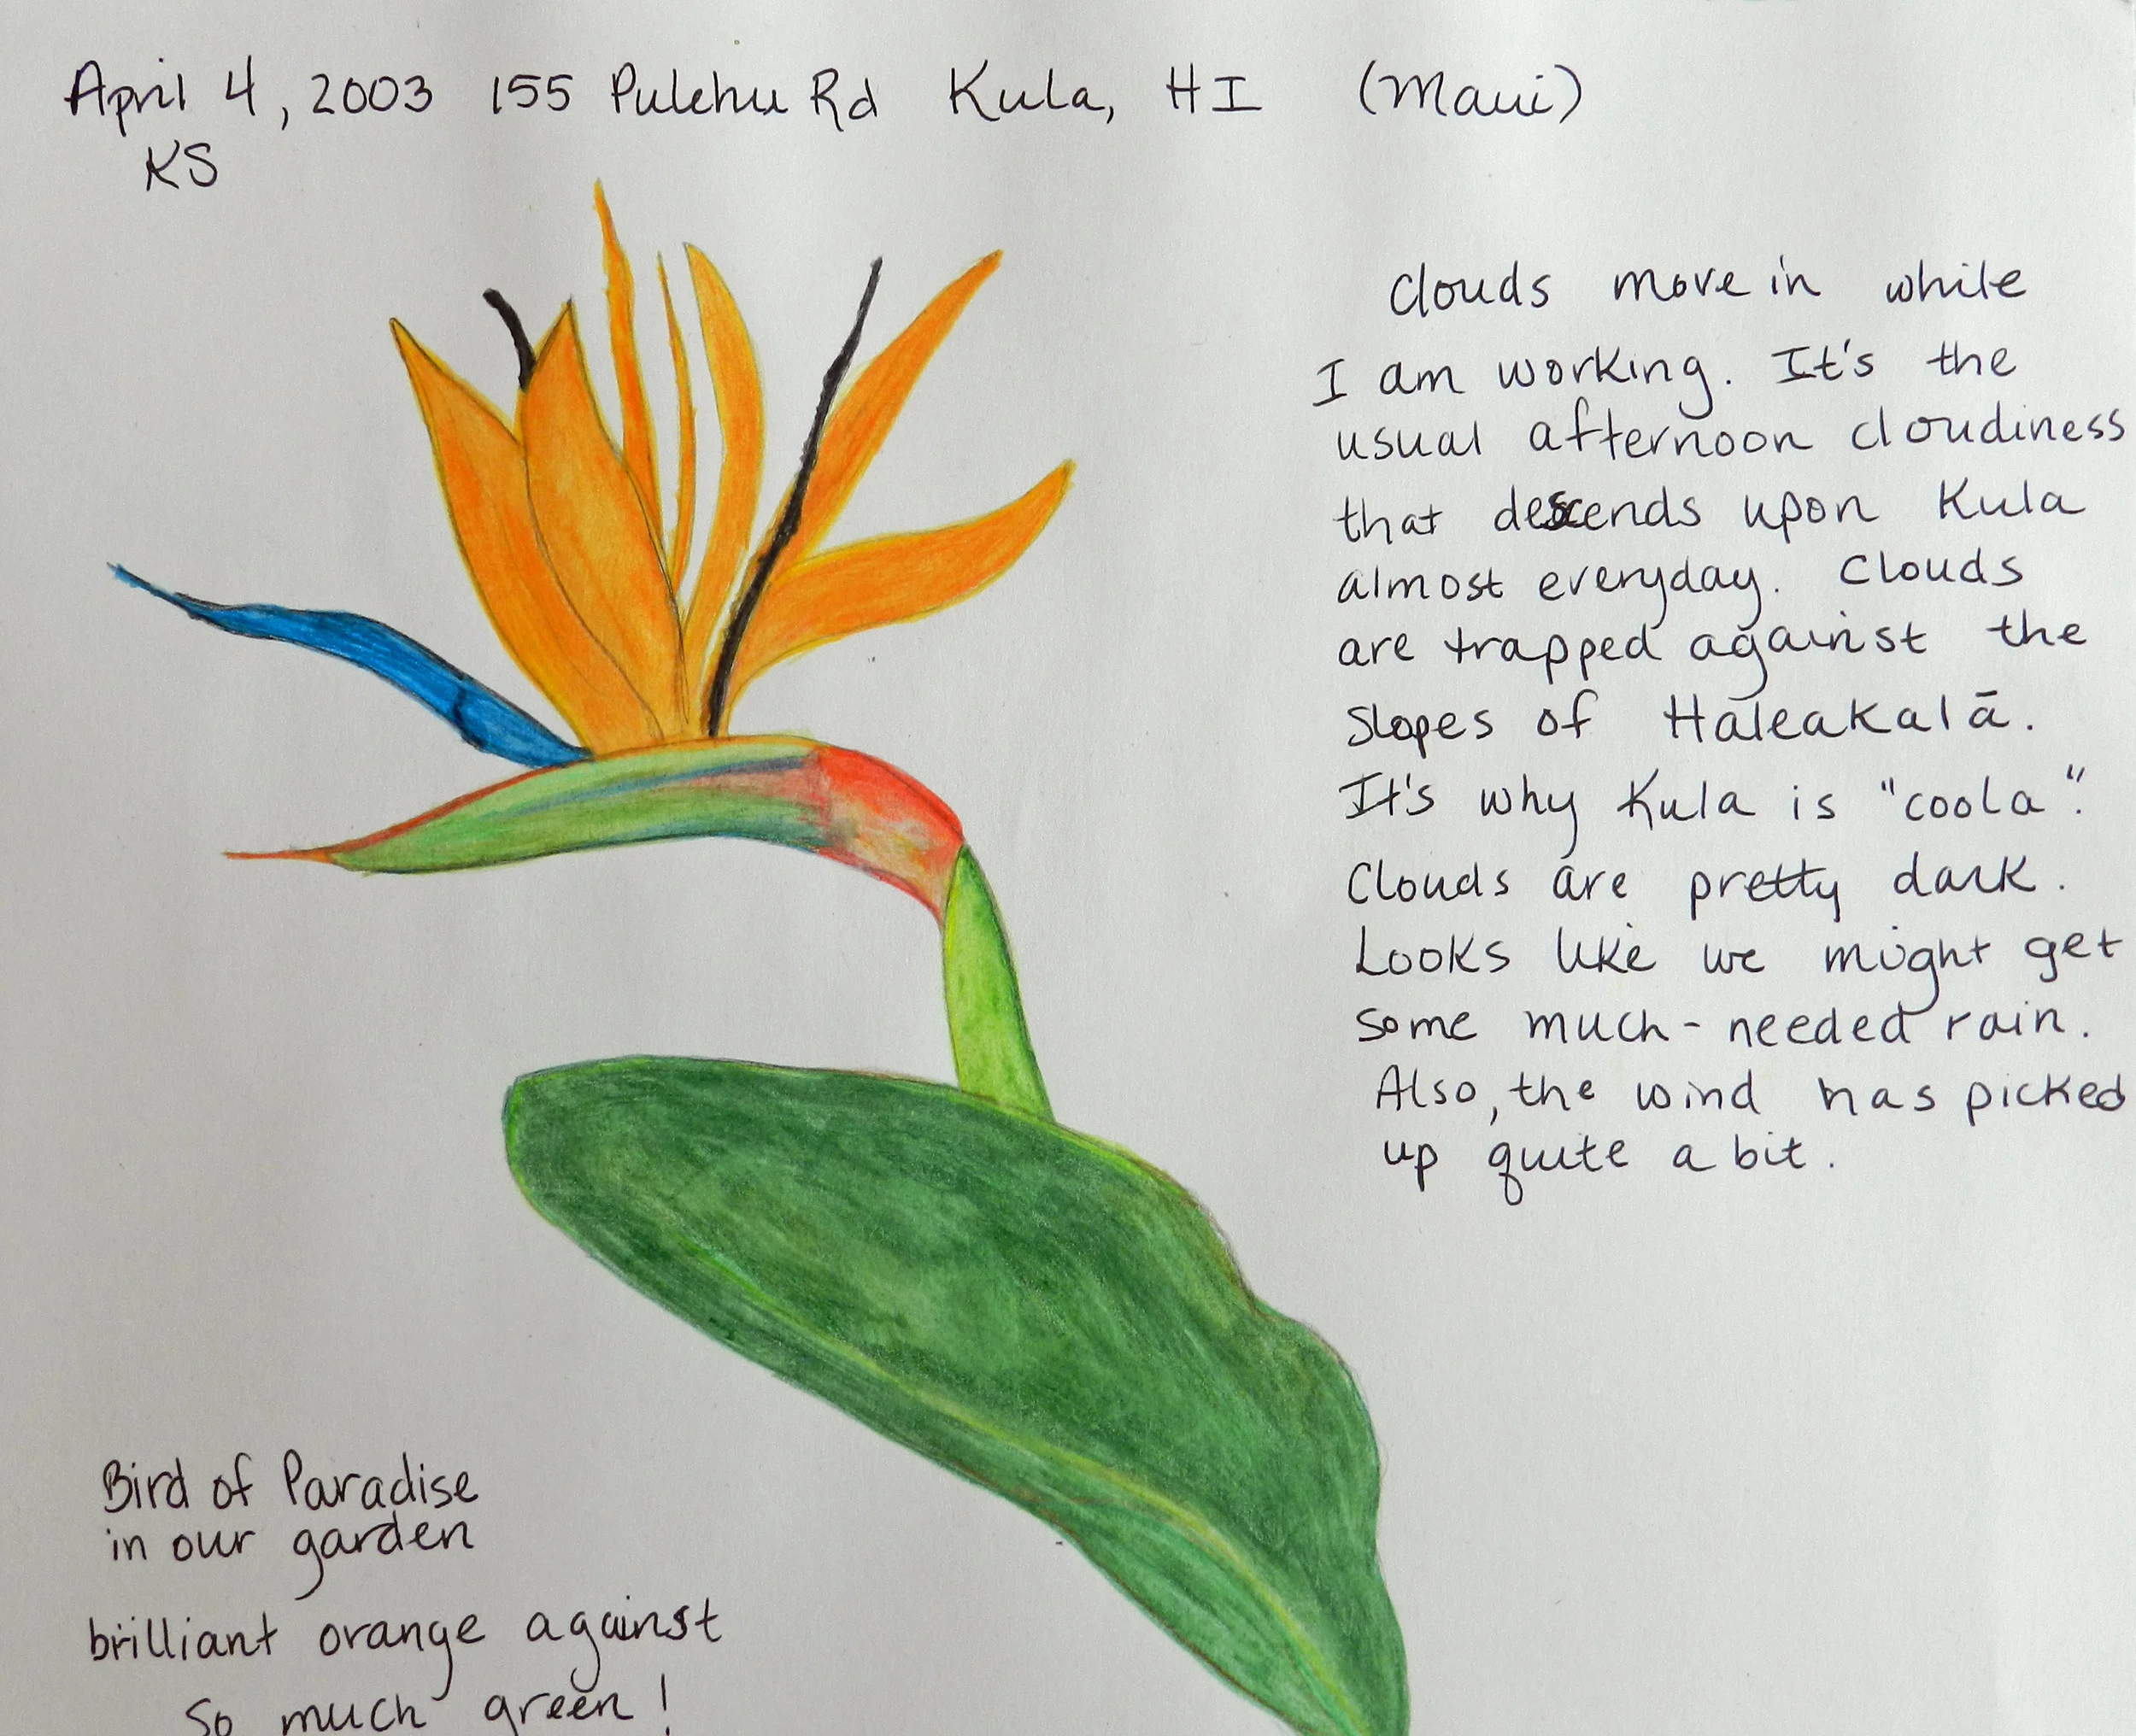 April 4, 2003 155 Pulehu Rd Kula, HI (Maui)
KS
Clouds move in while
I am working. It's the
usual afternoon cloudiness
that descends upon Kula
almost everyday. Clouds
are trapped against the
slopes of Haleakalā.
It's why Kula is "coola".
Clouds are pretty dark.
Looks like we might get
some much-needed rain.
Also, the wind has picked
up quite a bit.
Bird of Paradise
in our garden
brilliant orange against
so much green!